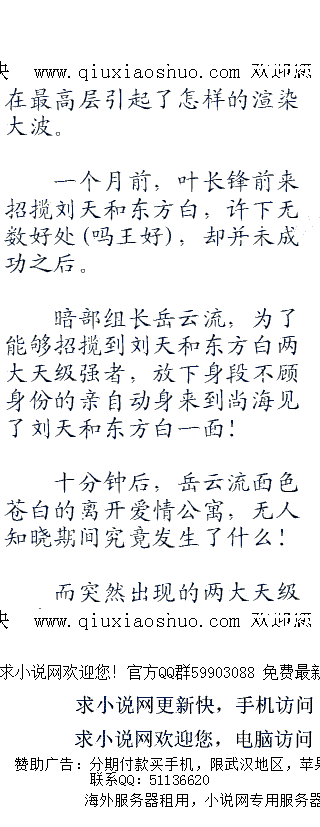 快 www.qiuxiaoshuo.com 欢迎您
在最高层引起了怎样的渲染
大波。
一个月前，叶长锋前来
招揽刘天和东方白，许下无
数好处(吗王好)，却并未成
功之后。
暗部组长岳云流，为了
能够招揽到刘天和东方白两
大天级强者，放下身段不顾
身份的亲自动身来到尚海见
了刘天和东方白一面！
十分钟后，岳云流面色
苍白的离开爱情公寓，无人
知晓期间究竟发生了什么！
而突然出现的两大天级
快 www.qiuxiaoshuo.com 欢迎您
求小说网欢迎您！官方QQ群59903088 免费最新
求小说网更新快，手机访问
求小说网欢迎您，电脑访问
赞助广告：分期付款买手机，限武汉地区，苹果
联系QQ：51136620
海外服务器租用，小说网专用服务器